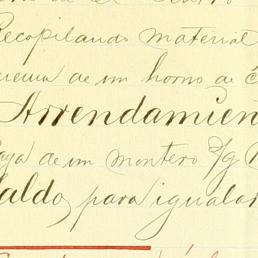 Recopilando material
quema de un horno de
Arrendamien
Paja de un montero
aldo, para igualar